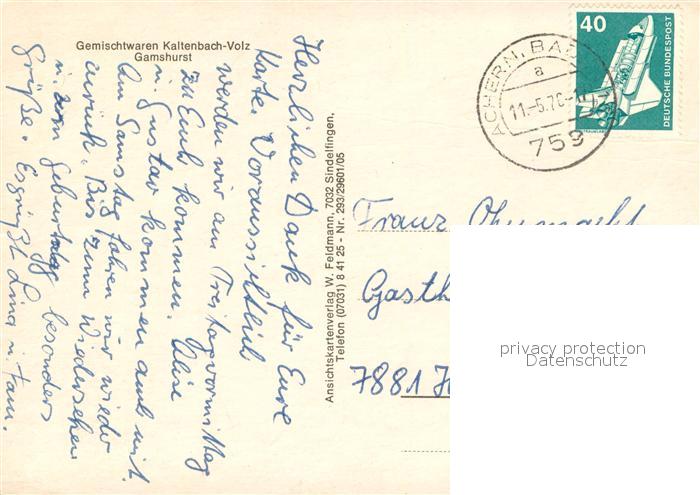 Gemischtwaren Kaltenbach-Volz
Gamshurst
Herzlichen Dank für Eure
Karte. Voraussichtlich
werden wir am Freitagvormittag
zu Euch kommen. Alise
u. Gustav kommen auch mit.
Am Samstag fahren wir wieder
zurück. Bis zum Wiedersehen
u. zum Geburtstag besonders
Grüße. Es grüßt Lina u. Fam.
Ansichtskartenverlag W. Feldmann, 7032 Sindelfingen,
Telefon (07031) 8 41 25 - Nr. 293/29601/05
40
DEUTSCHE BUNDESPOST
ACHERN, BAD
a
11.-5.76-
759
Franz Ohnmacht
Gasth
7881
privacy protection
Datenschutz